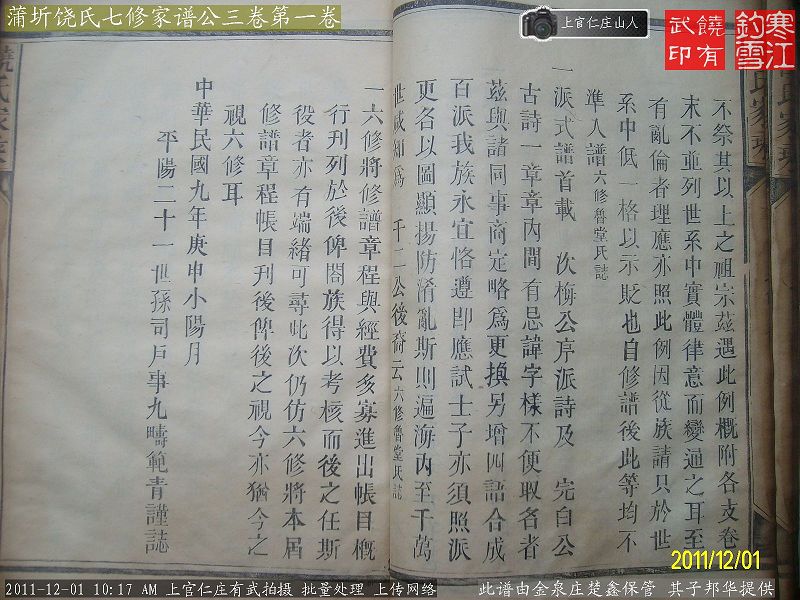 蒲圻饶氏七修家谱公三卷第一卷
上官仁庄山人
饒有武印
寒江釣雪
不祭其以上之祖宗茲遇此例概附各支卷
末不並列世系中實體律意而變通之耳至
有亂倫者理應亦照此例因從族請只於世
系中低一格以示貶也自修譜後此等均不
準入譜六修魯堂氏誌
一派式譜首載 次梅公序派詩及 完白公
古詩一章章內間有忌諱字樣不便取名者
茲與諸同事商定略為更換另增四語合成
百派我族永宜恪遵即應試士子亦須照派
更名以圖顯揚防淆亂斯則遍海內至千萬
世咸知為 千二公後裔云六修魯堂氏誌
一六修將修譜章程與經費多寡進出帳目概
行刊列於後俾閤族得以考核而後之任斯
役者亦有端緒可尋此次仍仿六修將本屆
修譜章程帳目刊後俾後之視今亦猶今之
視六修耳
中華民國九年庚申小陽月
平陽二十一世孫司戶事九疇範青謹誌
2011/12/01
2011-12-01 10:17 AM 上官仁庄有武拍摄 批量处理 上传网络
此谱由金泉庄楚鑫保管 其子邦华提供